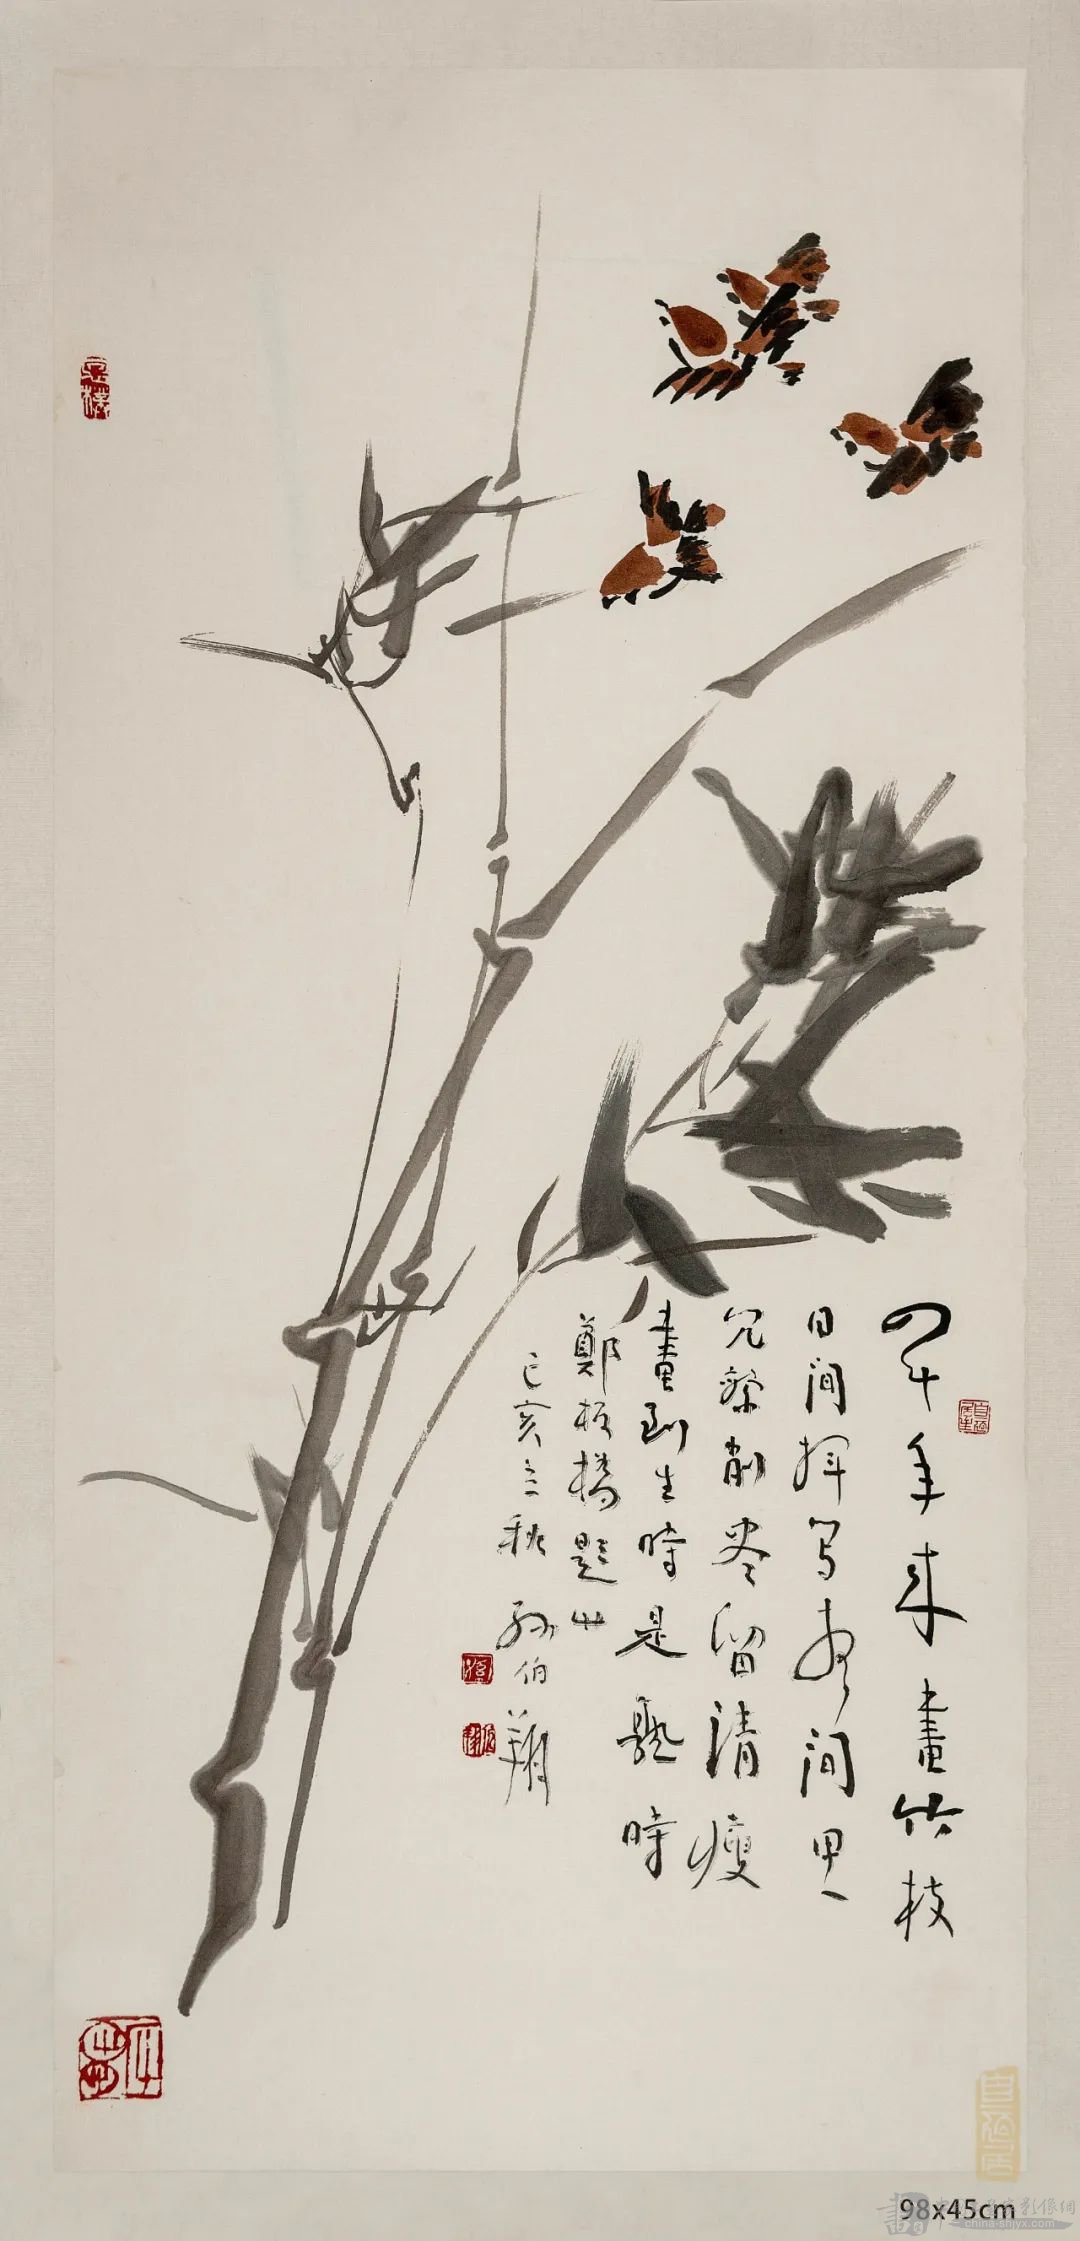 四十年來畫竹枝
日間揮写夜間思
冗繁削尽留清瘦
畫到生時是熟時
鄭板橋題竹
己亥立秋 孫伯翔
98x45cm
china-shjyx.com